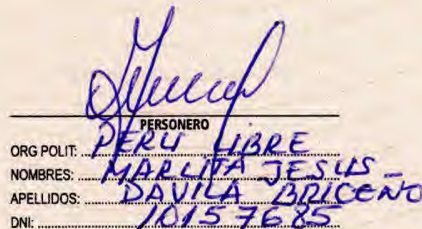 PERSONERO
ORG POLIT: PERU LIBRE
NOMBRES: MARLITA JESUS -
APELLIDOS: DAVILA BRICEÑO
DNI: 10157685